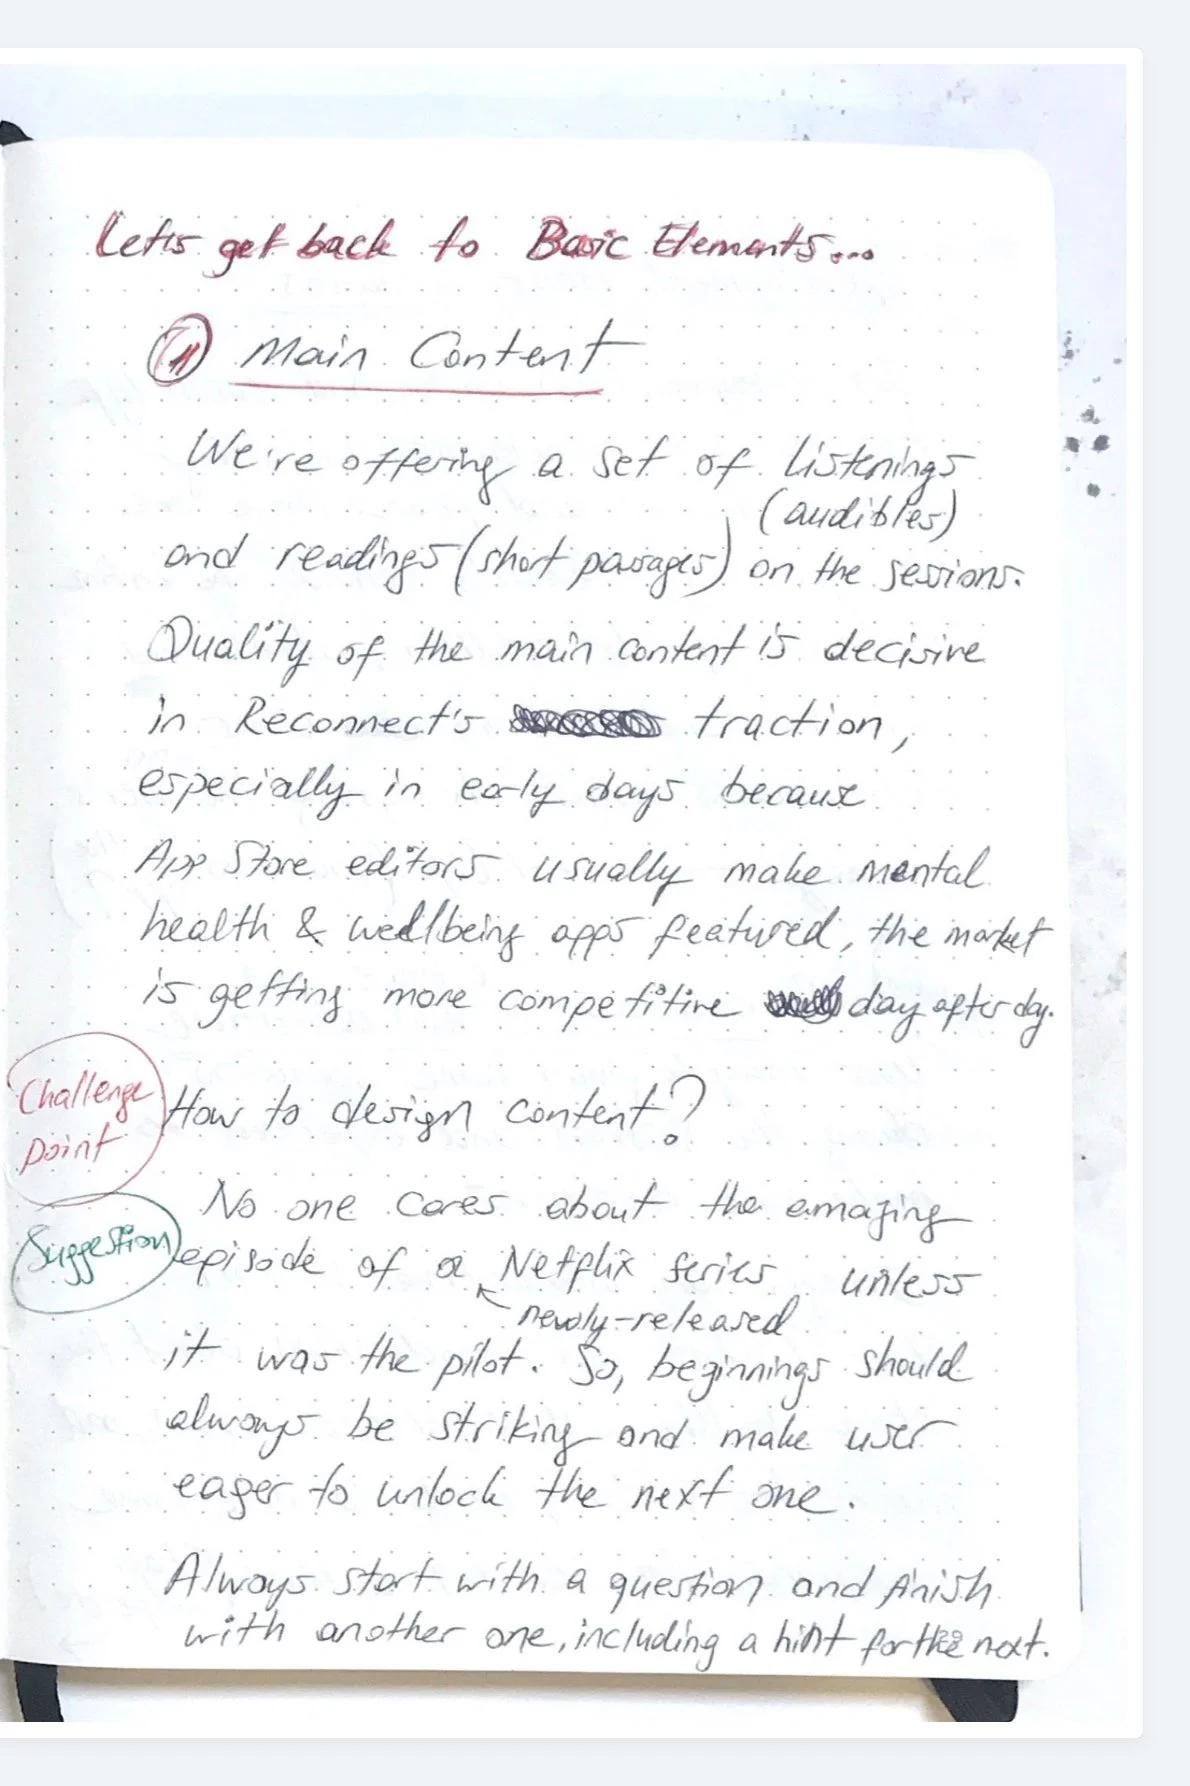 Let's get back to Basic Elements...
1 Main Content
We're offering a set of listenings
(audibles)
and readings (short passages) on the sessions.
Quality of the main content is decisive
in Reconnect's traction,
especially in early days because
App Store editors usually make mental
health & wellbeing apps featured, the market
is getting more competitive day after day.
Challenge
point
How to design content?
No one cares about the amazing
Suggestion
episode of a Netflix series unless
newly-released
it was the pilot. So, beginnings should
always be striking and make user
eager to unlock the next one.
Always start with a question and finish
with another one, including a hint for the next.